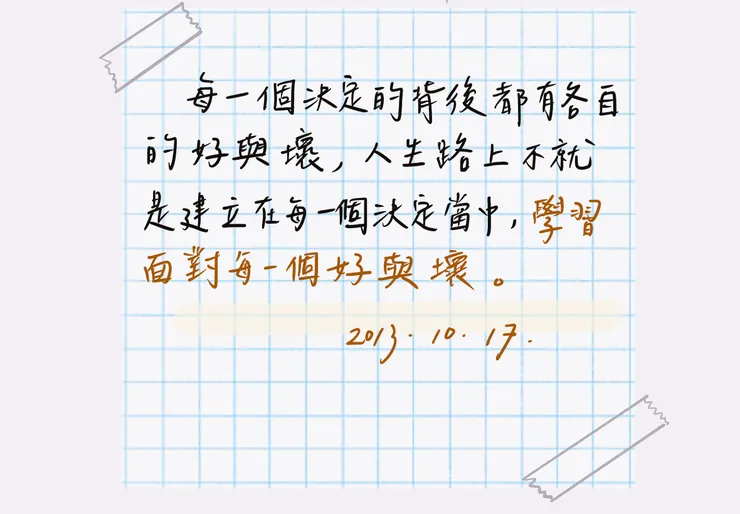 每一個決定的背後都有各自
的好與壞，人生路上不就
是建立在每一個決定當中，學習
面對每一個好與壞。
2013.10.17.